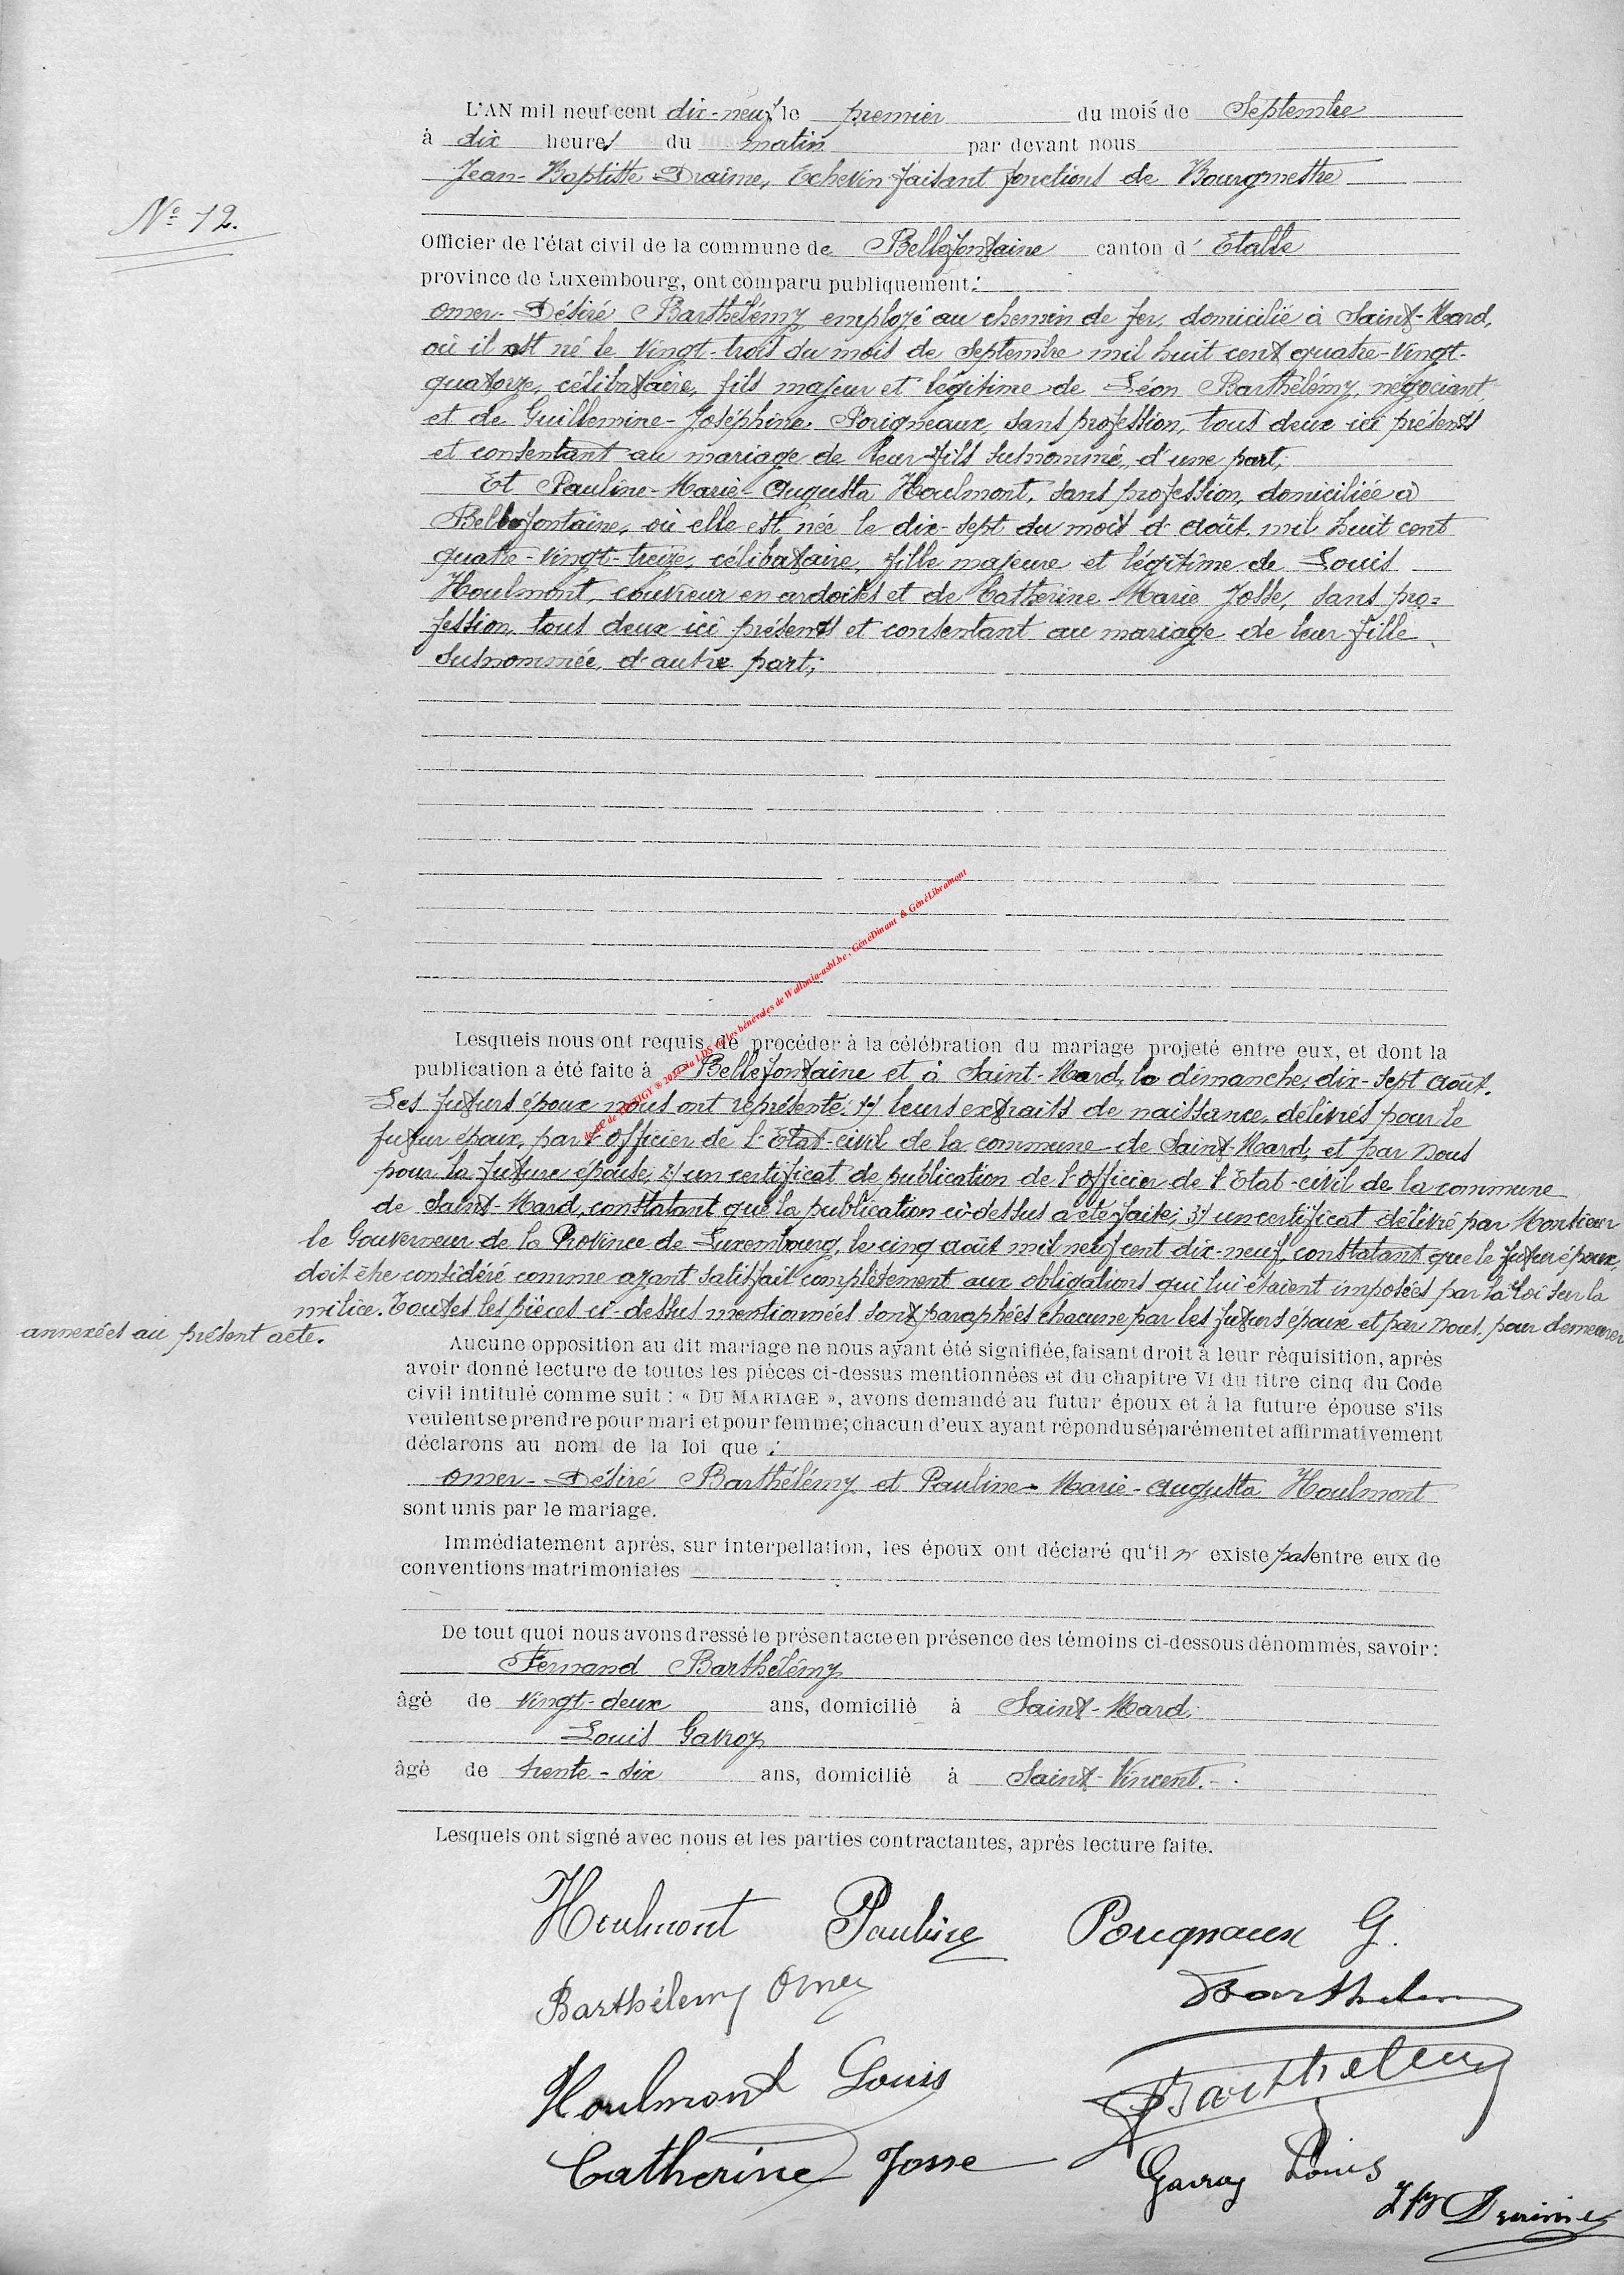 L'AN mil neuf cent dix-neuf le premier du mois de Septembre
à dix heures du matin par devant nous
Jean-Baptiste Draime, Echevin faisant fonctions de Bourgmestre
N° 12.
Officier de l'état civil de la commune de Bellefontaine canton d'Etalle
province de Luxembourg, ont comparu publiquement:
Omer-Désiré Barthélémy employé au chemin de fer, domicilié à Saint-Mard,
où il est né le vingt-trois du mois de Septembre mil huit cent quatre-vingt-
quatorze, célibataire, fils majeur et légitime de Léon Barthélémy, négociant,
et de Guillemine-Joséphine Porigneaux, sans profession, tous deux ici présents
et consentant au mariage de leur fils susnommé, d'une part,
Et Pauline-Marie-Augusta Houlmont, sans profession, domiciliée à
Bellefontaine, où elle est née le dix-sept du mois d'août mil huit cent
quatre-vingt-treize, célibataire, fille majeure et légitime de Louis
Houlmont, couvreur en ardoises et de Catherine-Marie Josse, sans pro=
fession, tous deux ici présents et consentant au mariage de leur fille
susnommée, d'autre part;
Lesquels nous ont requis de procéder à la célébration du mariage projeté entre eux, et dont la
publication a été faite à Bellefontaine et à Saint-Mard, le dimanche, dix-sept août.
Les futurs époux nous ont représenté: 1°) leurs extraits de naissance, délivrés pour le
futur époux, par l'officier de l'Etat-civil de la commune de Saint-Mard, et par nous
pour la future épouse; 2°) un certificat de publication de l'officier de l'Etat-civil de la commune
de Saint-Mard, constatant que la publication ci-dessus a été faite; 3°) un certificat délivré par Monsieur
le Gouverneur de la Province de Luxembourg, le cinq août mil neuf cent dix-neuf, constatant que le futur époux,
doit être considéré comme ayant satisfait complètement aux obligations qui lui étaient imposées par la loi sur la
milice. Toutes les pièces ci-dessus mentionnées sont paraphées chacune par les futurs époux et par nous, pour demeurer
annexées au présent acte.
Aucune opposition au dit mariage ne nous ayant été signifiée, faisant droit à leur réquisition, après
avoir donné lecture de toutes les pièces ci-dessus mentionnées et du chapitre VI du titre cinq du Code
civil intitulé comme suit : « DU MARIAGE », avons demandé au futur époux et à la future épouse s'ils
veulent se prendre pour mari et pour femme; chacun d'eux ayant répondu séparément et affirmativement
déclarons au nom de la loi que :
Omer-Désiré Barthélémy et Pauline-Marie-Augusta Houlmont
sont unis par le mariage.
Immédiatement après, sur interpellation, les époux ont déclaré qu'il n'existe pas entre eux de
conventions matrimoniales
De tout quoi nous avons dressé le présent acte en présence des témoins ci-dessous dénommés, savoir:
Fernand Barthélémy
âgé de vingt-deux ans, domicilié à Saint-Mard,
Louis Gavroy
âgé de trente-six ans, domicilié à Saint-Vincent.
Lesquels ont signé avec nous et les parties contractantes, après lecture faite.
Houlmont Pauline Porignaux G.
Barthélemy Omer Barthelemy
Houlmont Louis Barthelemy
Catherine Josse Gavroy Louis
JB Draime
GénéDinant & GénéLibramont